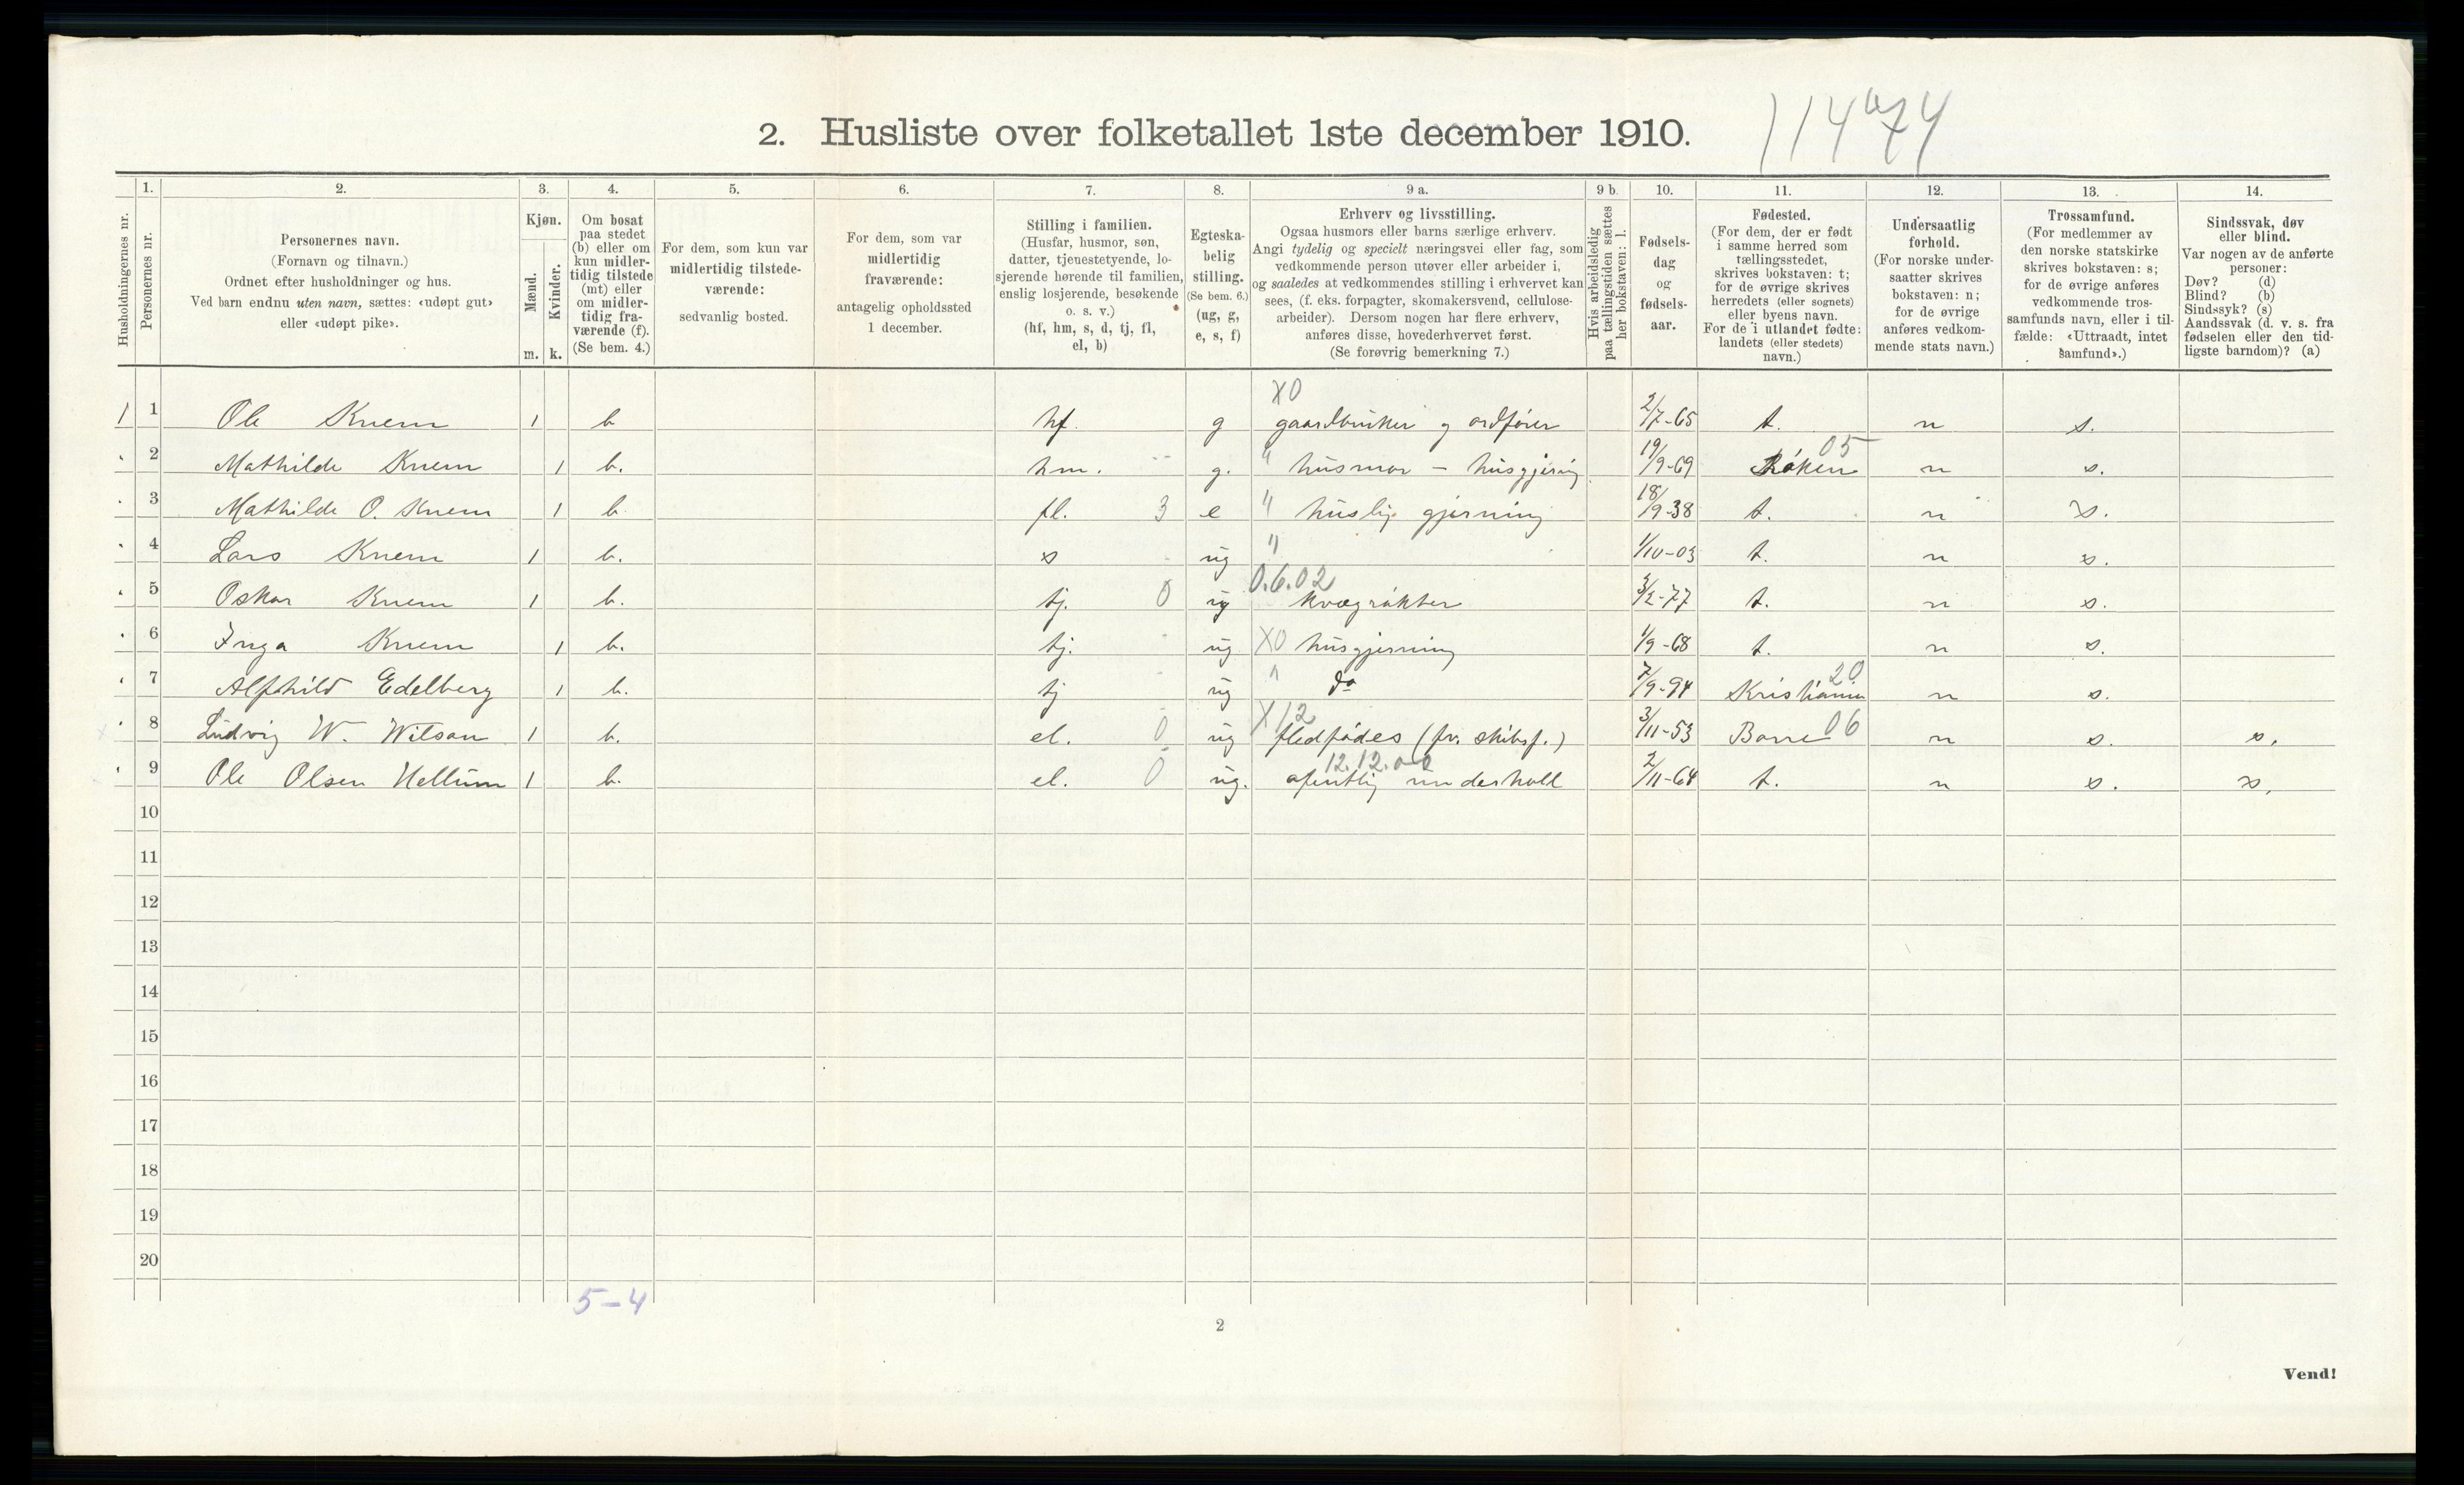 2. Husliste over folketallet 1ste december 1910.
1. 2. 3. 4. 5. 6. 7. 8. 9 a. 9 b. 10. 11. 12. 13. 14.
Husholdningernes nr.
Personernes nr.
Personernes navn.
(Fornavn og tilnavn.)
Ordnet efter husholdninger og hus.
Ved barn endnu uten navn, sættes: «udøpt gut»
eller «udøpt pike».
Kjøn.
Mænd.
Kvinder.
m. k.
Om bosat
paa stedet
(b) eller om
kun midler-
tidig tilstede
(mt) eller
om midler-
tidig fra-
værende (f).
(Se bem. 4.)
For dem, som kun var
midlertidig tilstede-
værende:
sedvanlig bosted.
For dem, som var
midlertidig
fraværende:
antagelig opholdssted
1 december.
Stilling i familien.
(Husfar, husmor, søn,
datter, tjenestetyende, lo-
sjerende hørende til familien,
enslig losjerende, besøkende
o. s. v.)
(hf, hm, s, d, tj, fl,
el, b)
Egteska-
belig
stilling.
(Se bem. 6.)
(ug, g,
e, s, f)
Erhverv og livsstilling.
Ogsaa husmors eller barns særlige erhverv.
Angi tydelig og specielt næringsvei eller fag, som
vedkommende person utøver eller arbeider i,
og saaledes at vedkommendes stilling i erhvervet kan
sees, (f. eks. forpagter, skomakersvend, cellulose-
arbeider). Dersom nogen har flere erhverv,
anføres disse, hovederhvervet først.
(Se forøvrig bemerkning 7.)
Hvis arbeidsledig
paa tællingstiden sættes
her bokstaven: l.
Fødsels-
dag
og
fødsels-
aar.
Fødested.
(For dem, der er født
i samme herred som
tællingsstedet,
skrives bokstaven: t;
for de øvrige skrives
herredets (eller sognets)
eller byens navn.
For de i utlandet fødte:
landets (eller stedets)
navn.)
Undersaatlig
forhold.
(For norske under-
saatter skrives
bokstaven: n;
for de øvrige
anføres vedkom-
mende stats navn.)
Trossamfund.
(For medlemmer av
den norske statskirke
skrives bokstaven: s;
for de øvrige anføres
vedkommende tros-
samfunds navn, eller i til-
fælde: «Uttraadt, intet
samfund».)
Sindssvak, døv
eller blind.
Var nogen av de anførte
personer:
Døv? (d)
Blind? (b)
Sindssyk? (s)
Aandssvak (d. v. s. fra
fødselen eller den tid-
ligste barndom)? (a)
X0
1 1 Ole Knem 1 b hf. g gaardbruker og ordfører 2/7-65 t. n s.
2 Mathilde Knem 1 b. hm. g. " husmor - husgjerning 19/9-69 Røken 05 n s.
3 Mathilde O. Knem 1 b. fl. 3 e " huslig gjerning 18/9-38 t. n s.
4 Lars Knem 1 b. s ug " 1/10-03 t. n s.
5 Oskar Knem 1 b. tj. 0 ug 0.6.02 kvægrøkter 3/2-77 t. n s.
6 Inga Knem 1 b. tj. ug X0 husgjerning 1/9-68 t. n s.
7 Alfhild Edelberg 1 b. tj ug " do 7/9-94 Kristiania 20 n s.
8 Ludvig W. Wilson 1 b. el. 0 ug X12 fledfødes (fv. skibsf.) 3/11-53 Borre 06 n s. s.
9 Ole Olsen Hellum 1 b. el. 0 ug. 12.12.00 ofentlig underhold 2/11-64 t. n s. s.
10
11
12
13
14
15
16
17
18
19
20
5-4
2
Vend!